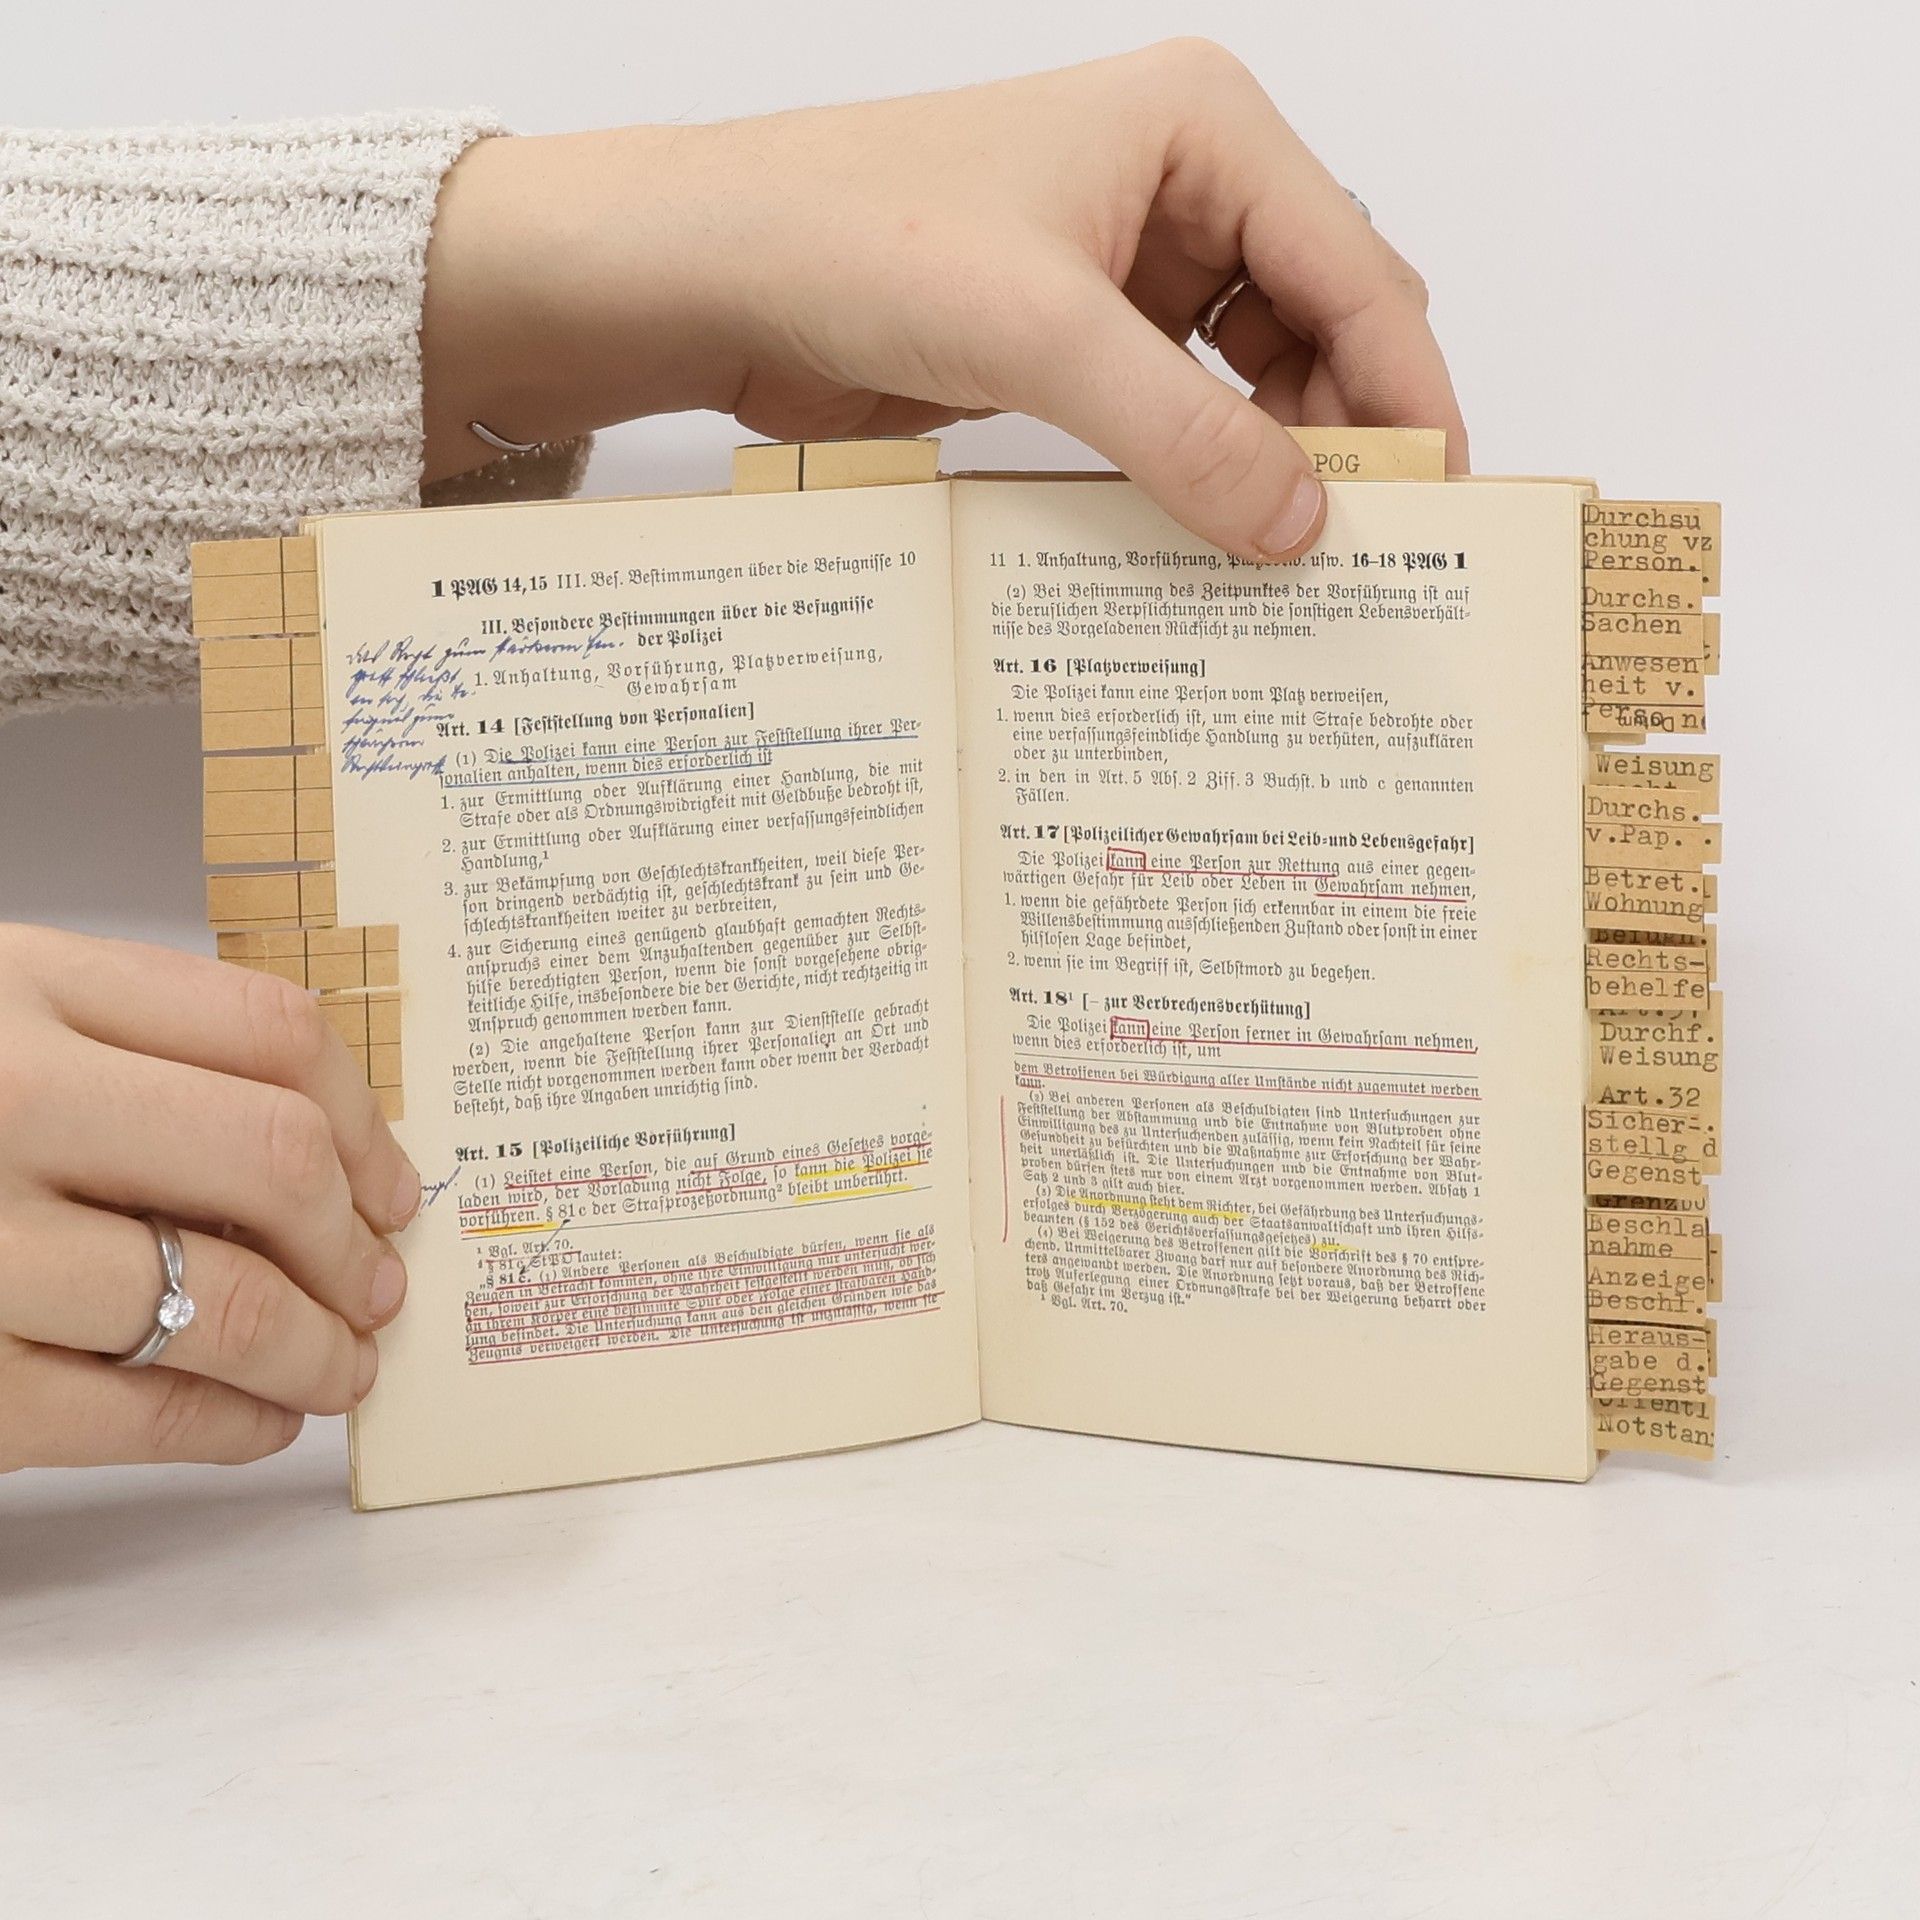 POG
1 PAG 14,15 III. Bes. Bestimmungen über die Befugnisse 10
III. Besondere Bestimmungen über die Befugnisse
der Polizei
1. Anhaltung, Vorführung, Platzverweisung,
Gewahrsam
Art. 14 [Feststellung von Personalien]
(1) Die Polizei kann eine Person zur Feststellung ihrer Per-
sonalien anhalten, wenn dies erforderlich ist
1. zur Ermittlung oder Aufklärung einer Handlung, die mit
Strafe oder als Ordnungswidrigkeit mit Geldbuße bedroht ist,
2. zur Ermittlung oder Aufklärung einer verfassungsfeindlichen
Handlung,¹
3. zur Bekämpfung von Geschlechtskrankheiten, weil diese Per-
son dringend verdächtig ist, geschlechtskrank zu sein und Ge-
schlechtskrankheiten weiter zu verbreiten,
4. zur Sicherung eines genügend glaubhaft gemachten Rechts-
anspruchs einer dem Anzuhaltenden gegenüber zur Selbst-
hilfe berechtigten Person, wenn die sonst vorgesehene obrig-
keitliche Hilfe, insbesondere die der Gerichte, nicht rechtzeitig in
Anspruch genommen werden kann.
(2) Die angehaltene Person kann zur Dienststelle gebracht
werden, wenn die Feststellung ihrer Personalien an Ort und
Stelle nicht vorgenommen werden kann oder wenn der Verdacht
besteht, daß ihre Angaben unrichtig sind.
Art. 15 [Polizeiliche Vorführung]
(1) Leistet eine Person, die auf Grund eines Gesetzes vorge-
laden wird, der Vorladung nicht Folge, so kann die Polizei sie
vorführen. § 81c der Strafprozeßordnung² bleibt unberührt.
¹ Vgl. Art. 70.
² § 81c StPO lautet:
„§ 81c. (1) Andere Personen als Beschuldigte dürfen, wenn sie als
Zeugen in Betracht kommen, ohne ihre Einwilligung nur untersucht wer-
den, soweit zur Erforschung der Wahrheit festgestellt werden muß, ob sich
an ihrem Körper eine bestimmte Spur oder Folge einer strafbaren Hand-
lung befindet. Die Untersuchung kann aus den gleichen Gründen wie das
Zeugnis verweigert werden. Die Untersuchung ist unzulässig, wenn sie
11 1. Anhaltung, Vorführung, usw. 16–18 PAG 1
(2) Bei Bestimmung des Zeitpunktes der Vorführung ist auf
die beruflichen Verpflichtungen und die sonstigen Lebensverhält-
nisse des Vorgeladenen Rücksicht zu nehmen.
Art. 16 [Platzverweisung]
Die Polizei kann eine Person vom Platz verweisen,
1. wenn dies erforderlich ist, um eine mit Strafe bedrohte oder
eine verfassungsfeindliche Handlung zu verhüten, aufzuklären
oder zu unterbinden,
2. in den in Art. 5 Abs. 2 Ziff. 3 Buchst. b und c genannten
Fällen.
Art. 17 [Polizeilicher Gewahrsam bei Leib- und Lebensgefahr]
Die Polizei kann eine Person zur Rettung aus einer gegen-
wärtigen Gefahr für Leib oder Leben in Gewahrsam nehmen,
1. wenn die gefährdete Person sich erkennbar in einem die freie
Willensbestimmung ausschließenden Zustand oder sonst in einer
hilflosen Lage befindet,
2. wenn sie im Begriff ist, Selbstmord zu begehen.
Art. 18¹ [– zur Verbrechensverhütung]
Die Polizei kann eine Person ferner in Gewahrsam nehmen,
wenn dies erforderlich ist, um
dem Betroffenen bei Würdigung aller Umstände nicht zugemutet werden
kann.
(2) Bei anderen Personen als Beschuldigten sind Untersuchungen zur
Feststellung der Abstammung und die Entnahme von Blutproben ohne
Einwilligung des zu Untersuchenden zulässig, wenn kein Nachteil für seine
Gesundheit zu befürchten und die Maßnahme zur Erforschung der Wahr-
heit unerläßlich ist. Die Untersuchungen und die Entnahme von Blut-
proben dürfen stets nur von einem Arzt vorgenommen werden. Absatz 1
Satz 2 und 3 gilt auch hier.
(3) Die Anordnung steht dem Richter, bei Gefährdung des Untersuchungs-
erfolges durch Verzögerung auch der Staatsanwaltschaft und ihren Hilfs-
beamten (§ 152 des Gerichtsverfassungsgesetzes) zu.
(4) Bei Weigerung des Betroffenen gilt die Vorschrift des § 70 entspre-
chend. Unmittelbarer Zwang darf nur auf besondere Anordnung des Rich-
ters angewandt werden. Die Anordnung setzt voraus, daß der Betroffene
trotz Auferlegung einer Ordnungsstrafe bei der Weigerung beharrt oder
daß Gefahr im Verzug ist.“
¹ Vgl. Art. 70.
Durchsu
chung vz
Person.
Durchs.
Sachen
Anwesen
heit v.
Weisung
Durchs.
v.Pap.
Betret.
Wohnung
Rechts-
behelfe
Durchf.
Weisung
Art.32
Sicher-
stellg d
Gegenst
Beschla
nahme
Anzeige
Beschl.
Heraus-
gabe d.
Gegenst
Notstan